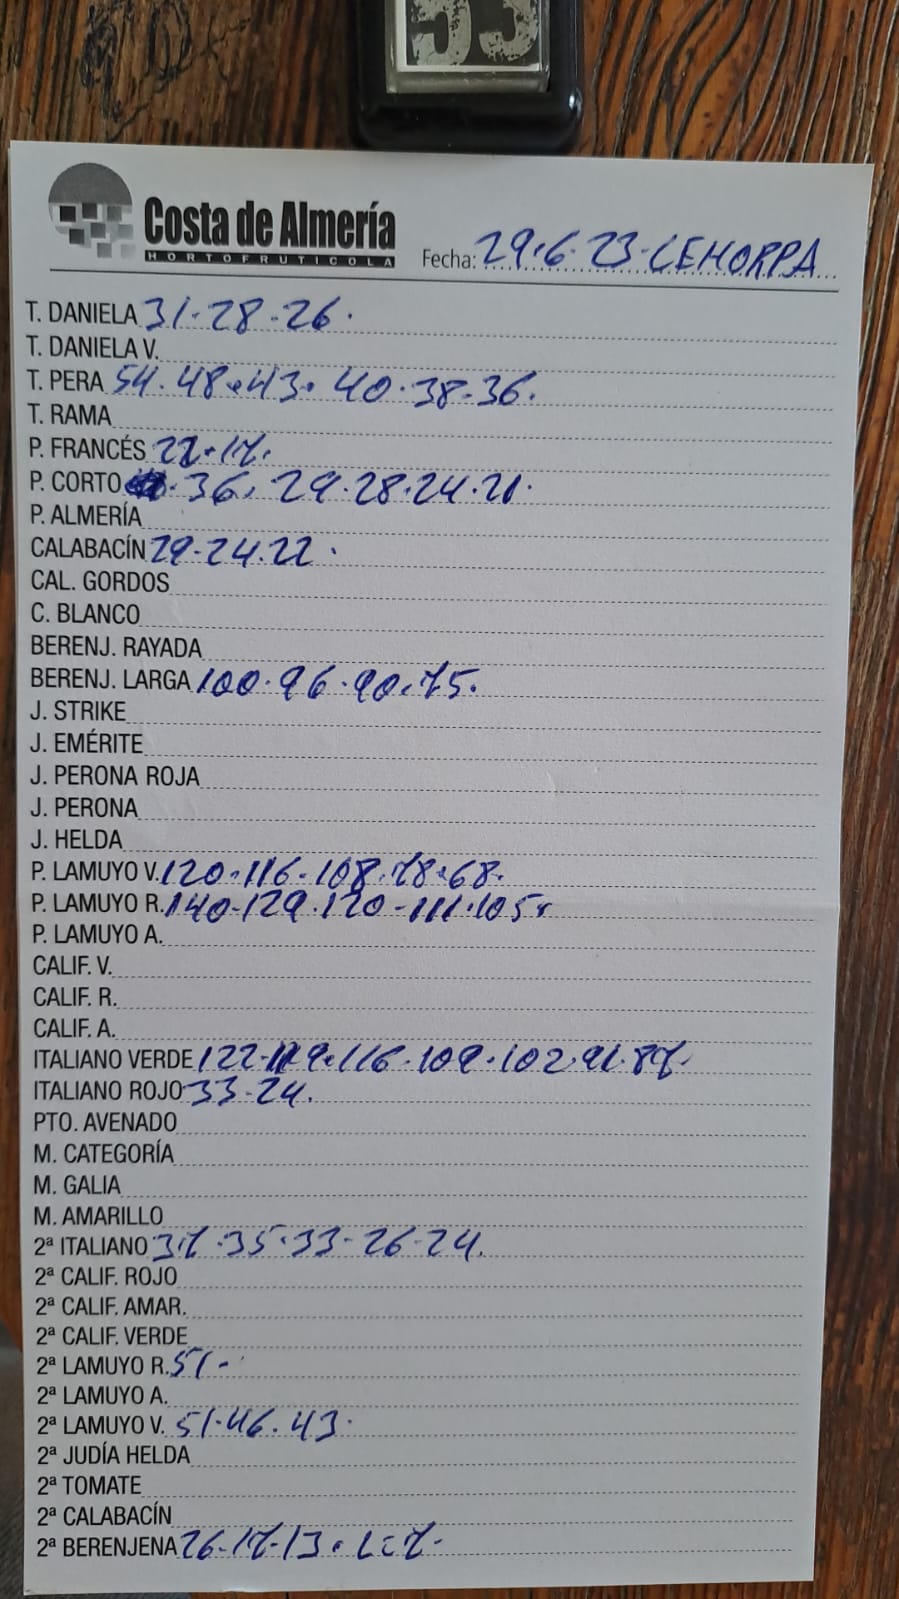 53
Costa de Almería
HORTOFRUTICOLA
Fecha: 29.6.23-CEHORPA
T. DANIELA 31.28.26.
T. DANIELA V.
T. PERA 54.48.43. 40.38.36.
T. RAMA
P. FRANCÉS 22.17.
P. CORTO .36. 29.28.24.21.
P. ALMERÍA
CALABACÍN 29.24.22.
CAL. GORDOS
C. BLANCO
BERENJ. RAYADA
BERENJ. LARGA 100.96.90.75.
J. STRIKE
J. EMÉRITE
J. PERONA ROJA
J. PERONA
J. HELDA
P. LAMUYO V. 120.116.108.78.68.
P. LAMUYO R. 140-129.120-111.105.
P. LAMUYO A.
CALIF. V.
CALIF. R.
CALIF. A.
ITALIANO VERDE 122.119.116.109.102.91.87.
ITALIANO ROJO 33.24.
PTO. AVENADO
M. CATEGORÍA
M. GALIA
M. AMARILLO
2ª ITALIANO 37.35.33.26.24.
2ª CALIF. ROJO
2ª CALIF. AMAR.
2ª CALIF. VERDE
2ª LAMUYO R. 51-
2ª LAMUYO A.
2ª LAMUYO V. 51.46.43.
2ª JUDÍA HELDA
2ª TOMATE
2ª CALABACÍN
2ª BERENJENA 26.17.13.